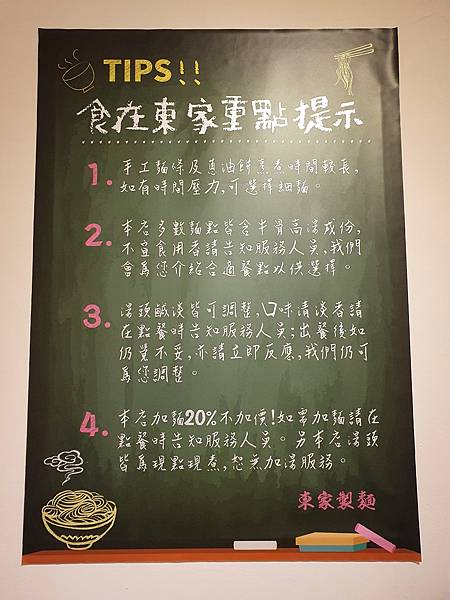 TIPS!!
食在東家重點提示
1. 手工麵條及蔥油餅烹煮時間較長,
如有時間壓力,可選擇細麵。
2. 本店多數麵點皆含牛骨高湯成份,
不宜食用者請告知服務人員,我們
會為您介紹合適餐點以供選擇。
3. 湯頭鹹淡皆可調整,口味清淡者請
在點餐時告知服務人員;出餐後如
仍覺不妥,亦請立即反應,我們仍可
為您調整。
4. 本店加麵20%不加價!如需加麵請在
點餐時告知服務人員。另本店湯頭
皆為現點現煮,恕無加湯服務。
東家製麵